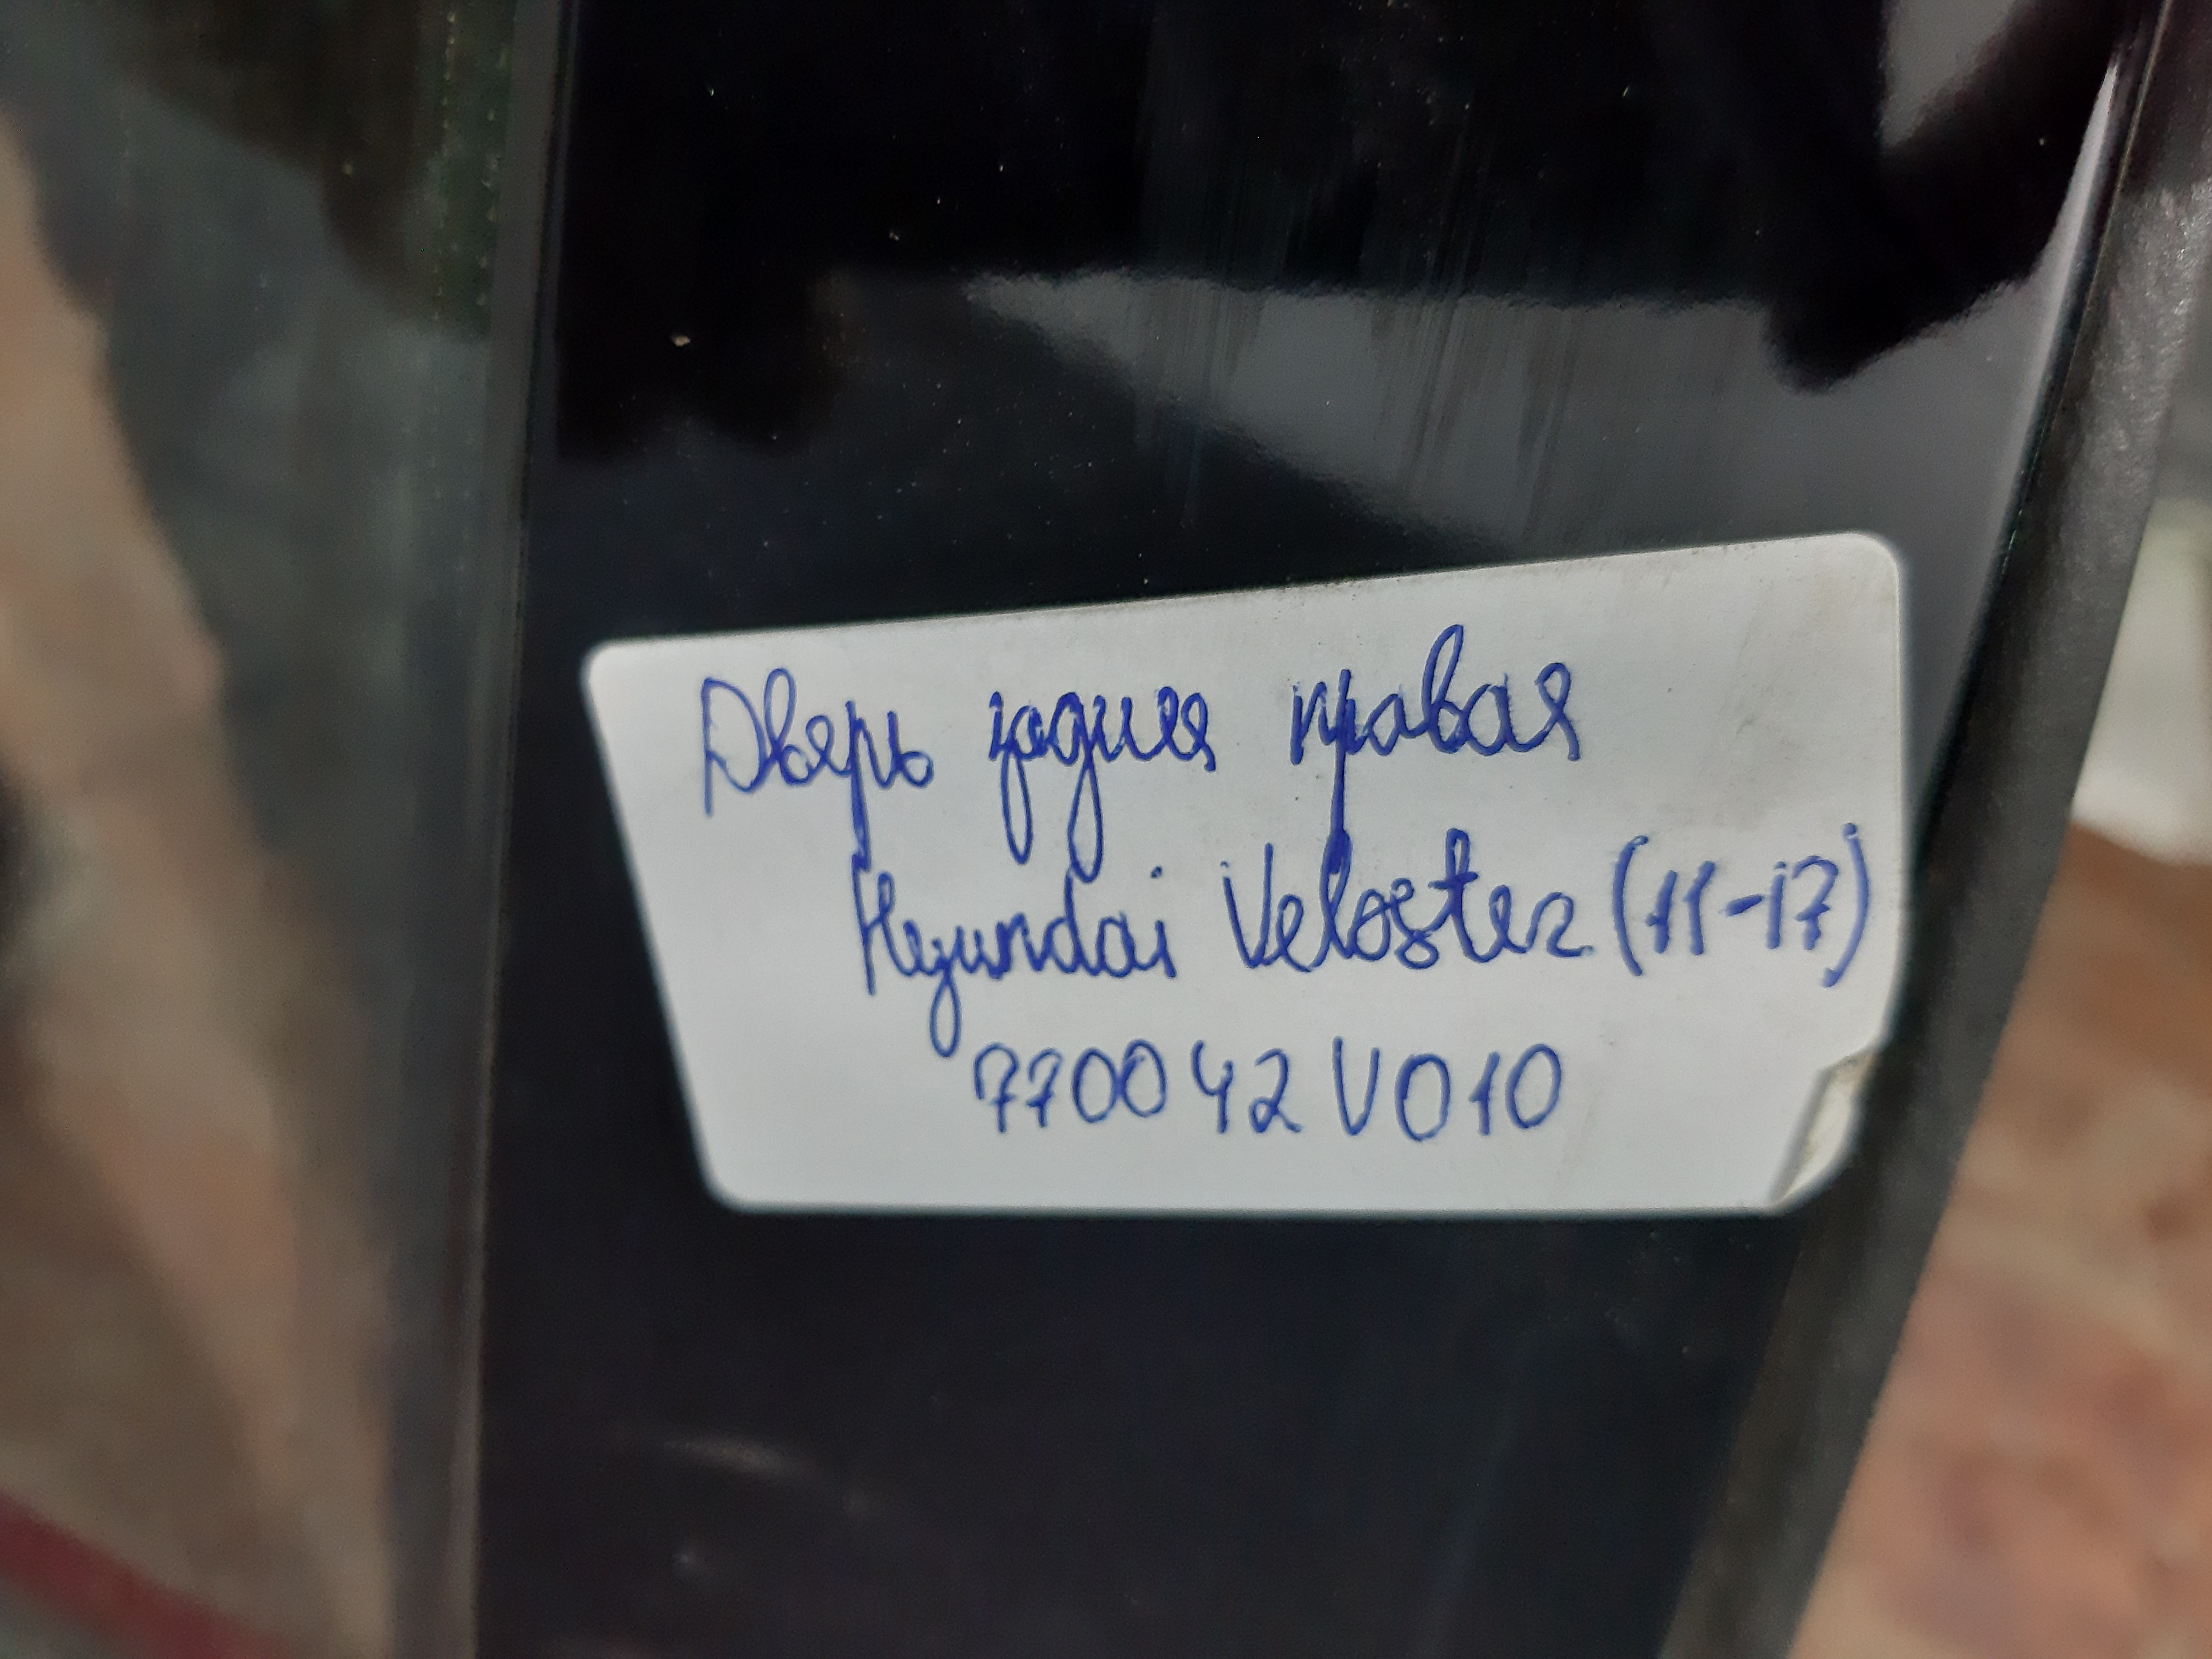 Дверь задняя правая
Hyundai Veloster (11-17)
770042V010